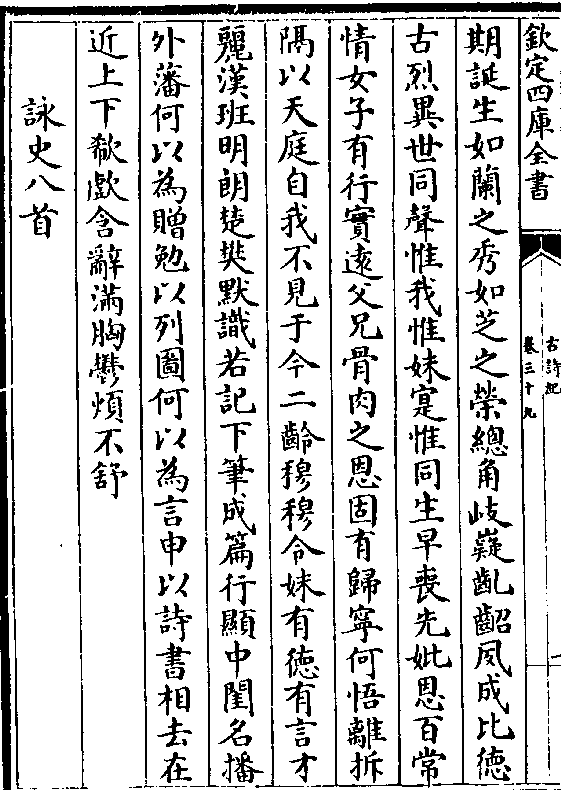 欽定四庫全書
古詩紀
卷三十九
期誕生如蘭之秀如芝之榮總角岐嶷齓齠夙成比德
古烈異世同聲惟我惟妹寔惟同生早喪先妣恩百常
情女子有行實遠父兄骨肉之恩固有歸寧何悟離拆
隔以天庭自我不見于今二齡穆穆令妹有德有言才
麗漢班明朗楚樊默識若記下筆成篇行顯中閨名播
外藩何以為贈勉以列圖何以為言申以詩書相去在
近上下欷歔含辭滿胸鬱煩不舒
詠史八首